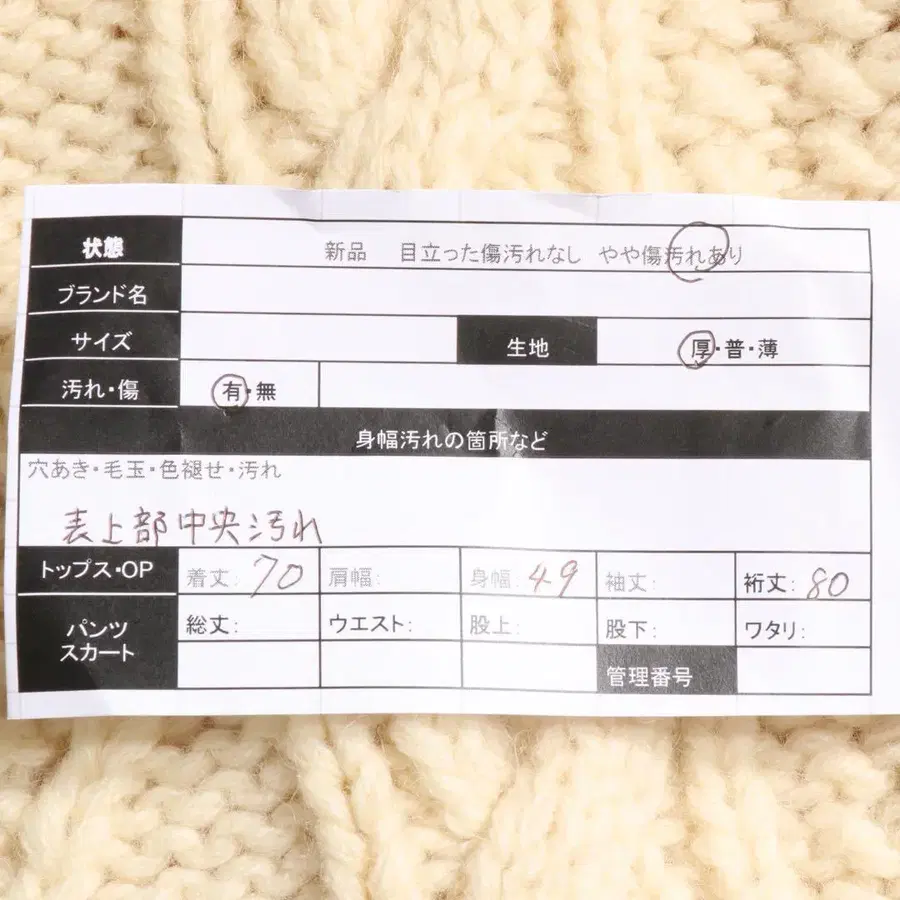 状態 新品 目立った傷汚れなし やや傷汚れあり
ブランド名
サイズ 生地 厚・普・薄
汚れ・傷 有・無
身幅汚れの箇所など
穴あき・毛玉・色褪せ・汚れ
表上部中央汚れ
トップス・OP 着丈: 70 肩幅: 身幅: 49 袖丈: 裄丈: 80
パンツ スカート 総丈: ウエスト: 股上: 股下: ワタリ:
管理番号